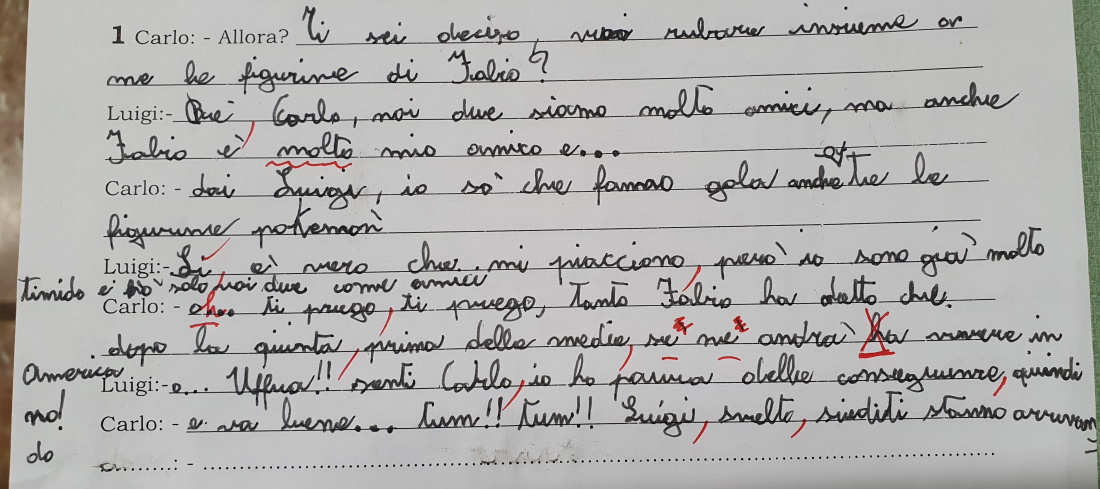 1 Carlo: - Allora? Ti sei deciso, vuoi rubare insieme a
me le figurine di Fabio?
Luigi:- Bhe, Carlo, noi due siamo molto amici, ma anche
Fabio è molto mio amico e...
Carlo: - dai Luigi, io sò che fanno gola anche a te le
figurine pokemon
Luigi:- Sì, è vero che mi piacciono, però io sono già molto
timido e ho solo voi due come amici
Carlo: - oh.. ti prego, ti prego, Tanto Fabio ha detto che
dopo la quinta, prima delle medie, se ne andrà ha vivere in
America
Luigi:- e... Uffua!! senti Carlo, io ho paura delle conseguenze, quindi
no!
Carlo: - e va bene... tum!! tum!! Luigi, svelto, siediti stanno arrivan
do
........: - ........